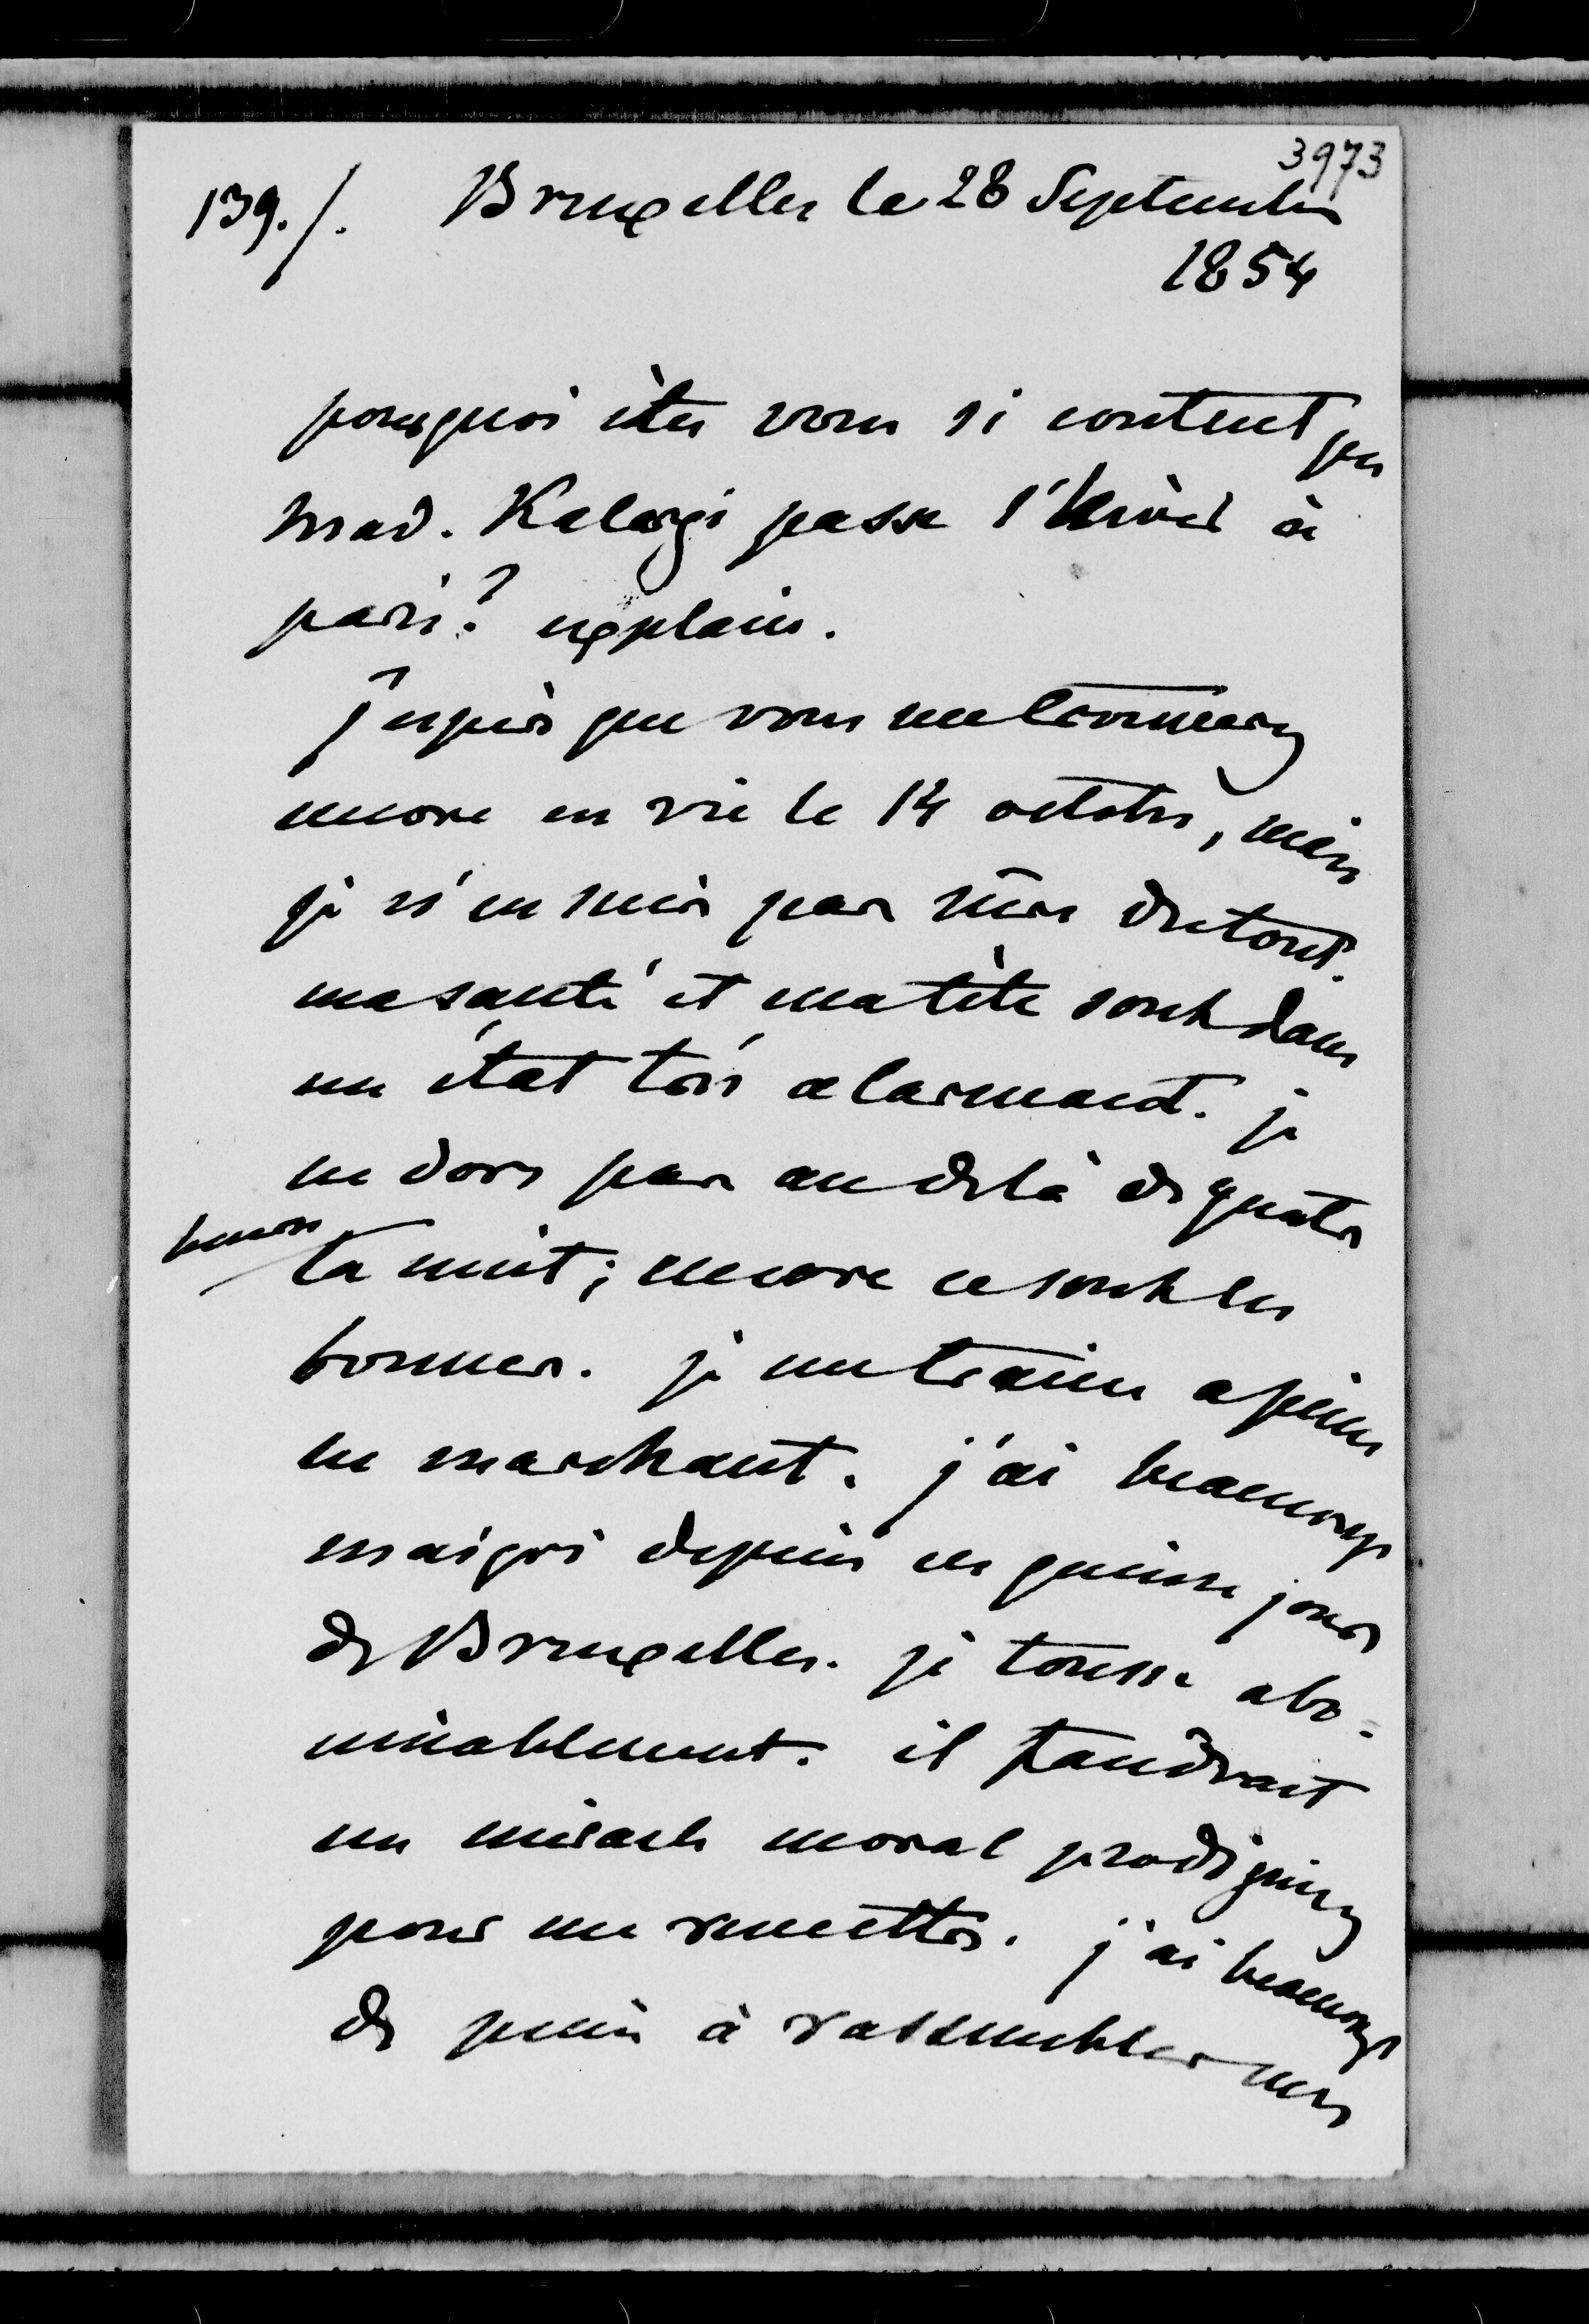 3973
139./. Bruxelles le 28 Septembre
1854
pourquoi êtes vous si content que
Mad. Kalergi passe l'hiver à
paris? explain.
j'espère que vous me trouverez
encore en vie le 14 octobre, mais
je n'en suis pas sûre du tout.
ma santé et ma tête sont dans
un état très alarmant. je
ne dors pas au delà de quatre
heures la nuit; encore ce sont les
bonnes. je me traine a peine
en marchant. j'ai beaucoup
maigri depuis ces quinze jours
de Bruxelles. je tousse abo-
minablement. il faudrait
un miracle moral prodigieux
pour me remettre. j'ai beaucoup
de peine à rassembler mes